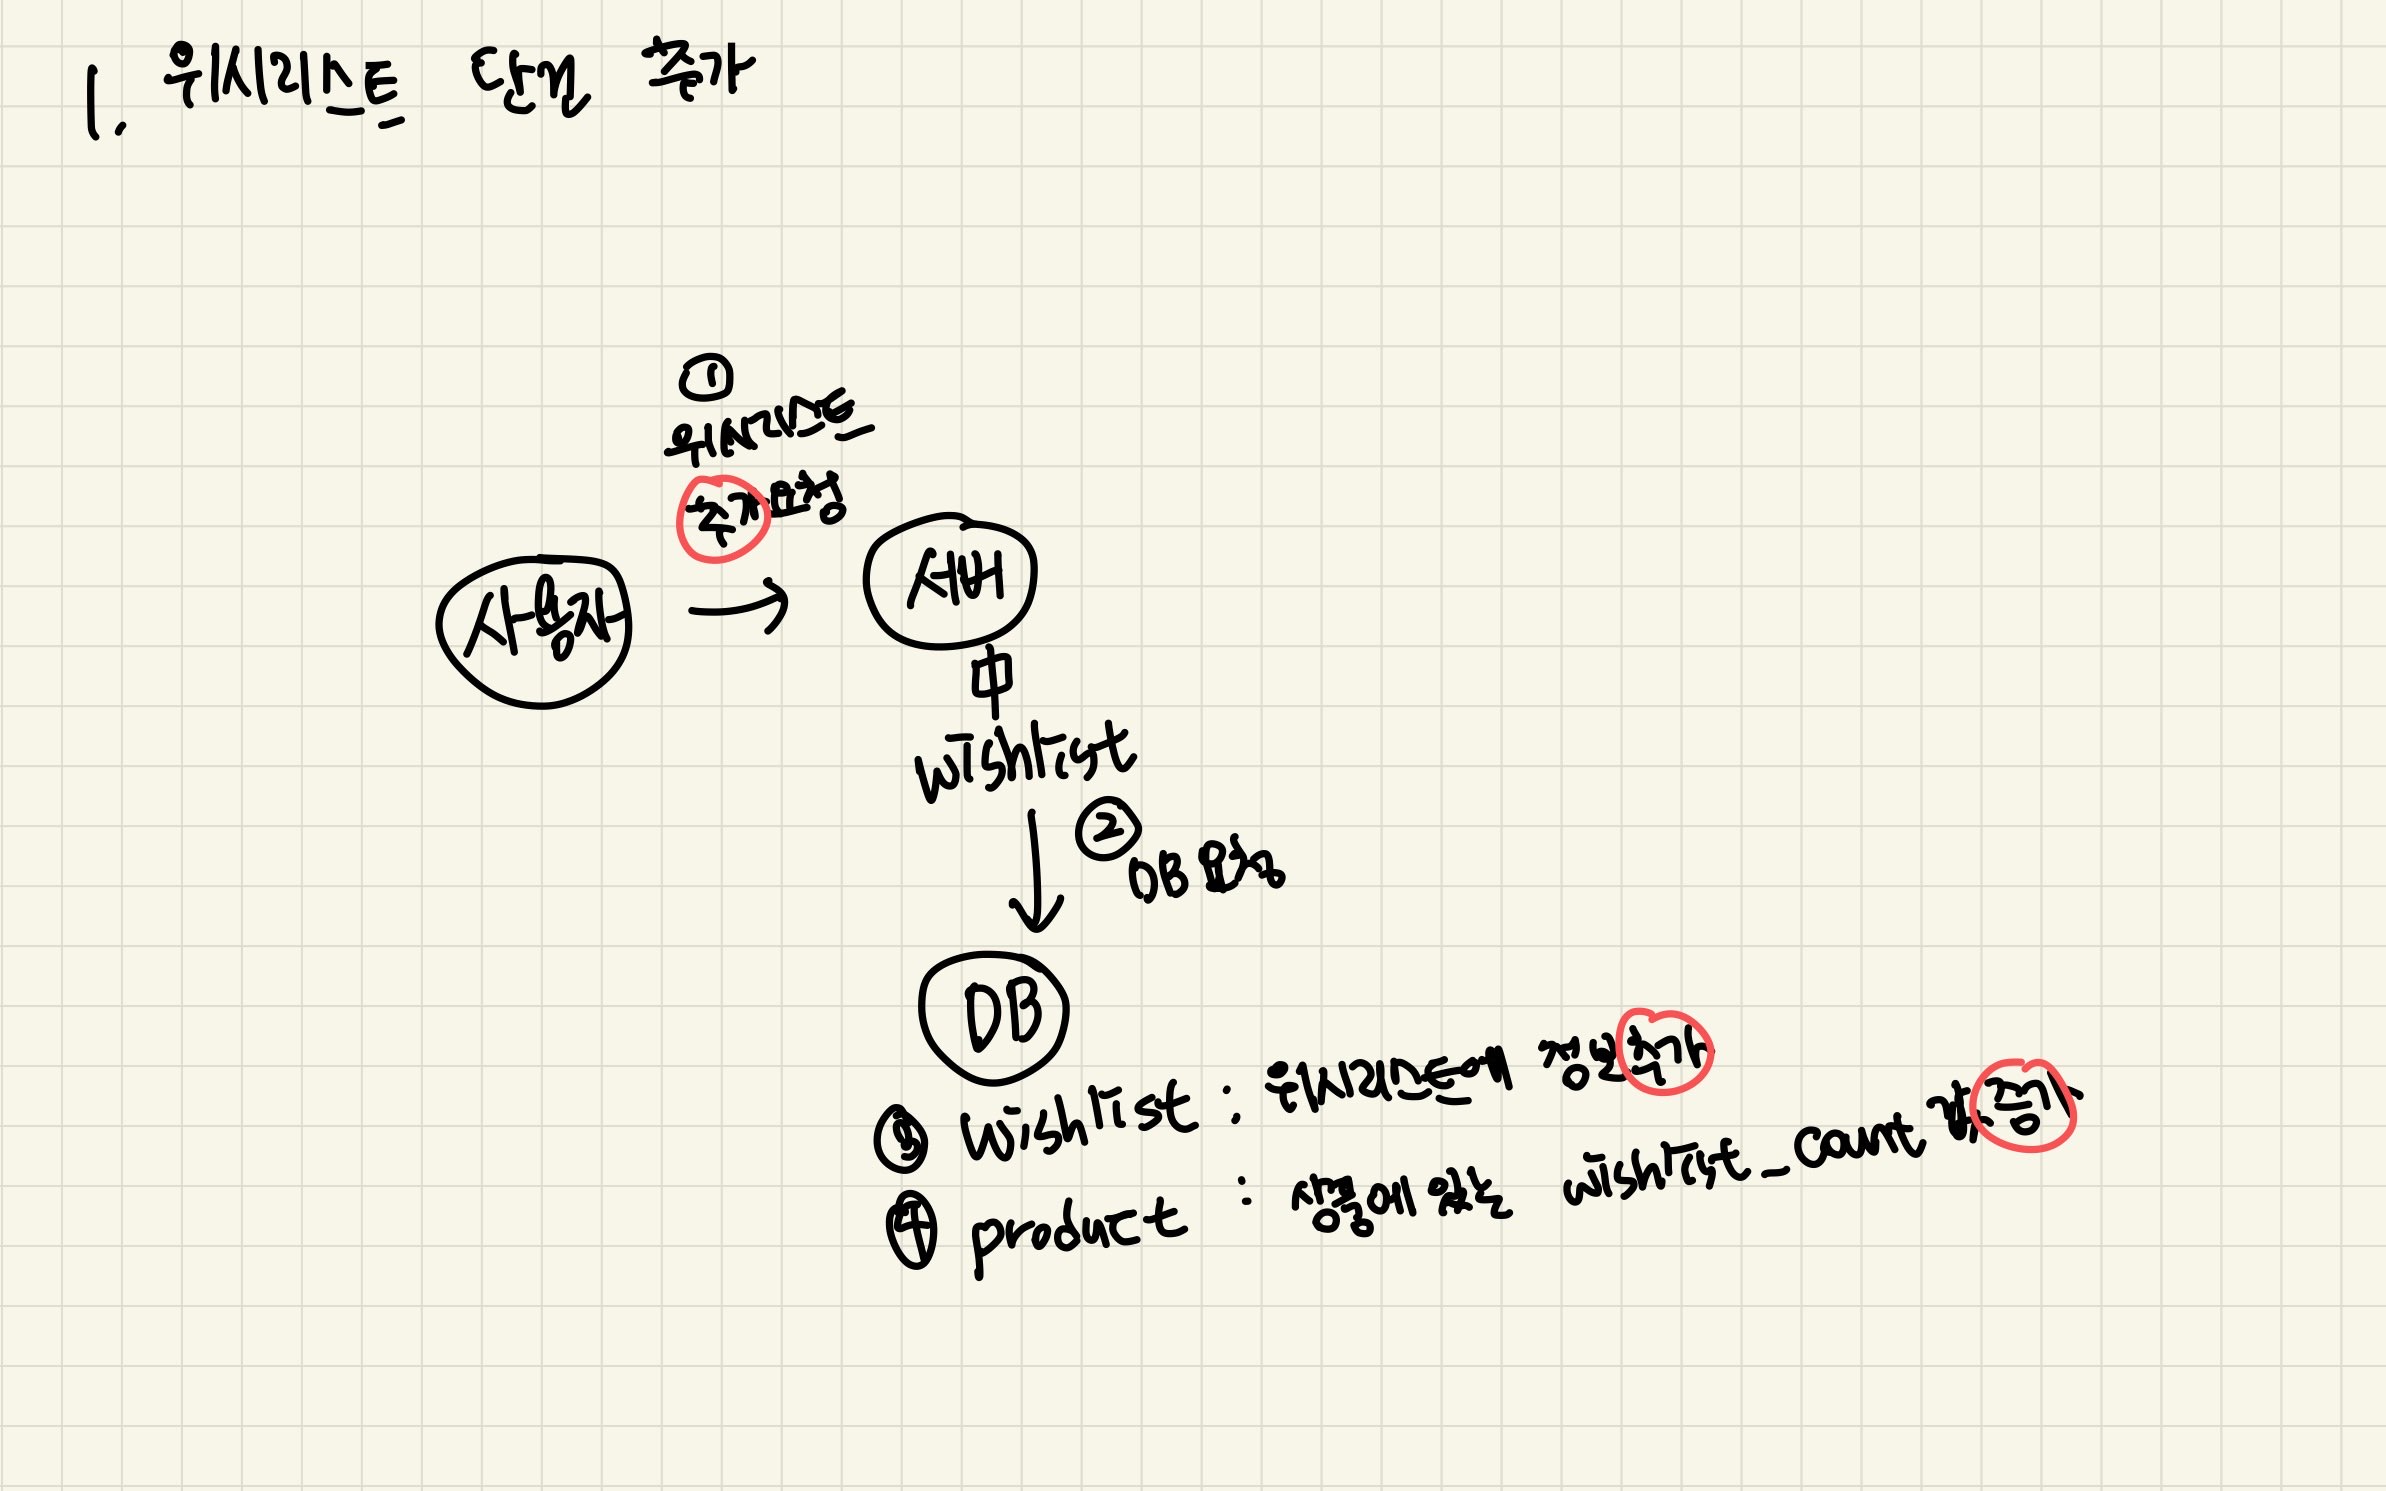 1. 위시리스트 단건 추가
①
위시리스트
추가요청
사용자
서버
wishlist
②
DB 요청
DB
③ wishlist : 위시리스트에 정보 추가
④ product : 상품에 있는 wishlist_count 개수 증가